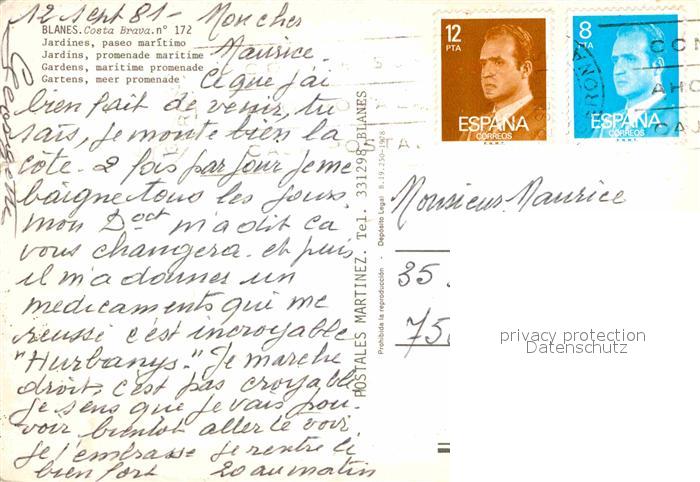 12 Sept 81 - Mon cher
BLANES. Costa Brava. n° 172
Jardines, paseo marítimo
Jardins, promenade maritime
Gardens, maritime promenade
Gartens, meer promenade
Maurice.
Ce que j'ai
bien fait de venir, tu
sais, je monte bien la
côte. 2 fois par jour je me
baigne tous les jours
mon Doct m'a dit ca
vous changera. et puis
il m'a donner un
medicaments qui me
reussi c'est incroyable
"Hurbanys." Je marche
droit, c'est pas croyable
je sens que je vais pou-
voir bientot aller te voir
je t'embrasse je rentre le
bien fort 20 au matin
POSTALES MARTINEZ. Tel. 331298 BLANES
Prohibida la reproducción - Depósito Legal B. 19.250-1978
12
PTA
ESPAÑA
CORREOS
F.N.M.T.
8
PTA
ESPAÑA
CORREOS
F.N.M.T.
CON
AHO
CA
Monsieur Maurice
35
75
privacy protection
Datenschutz